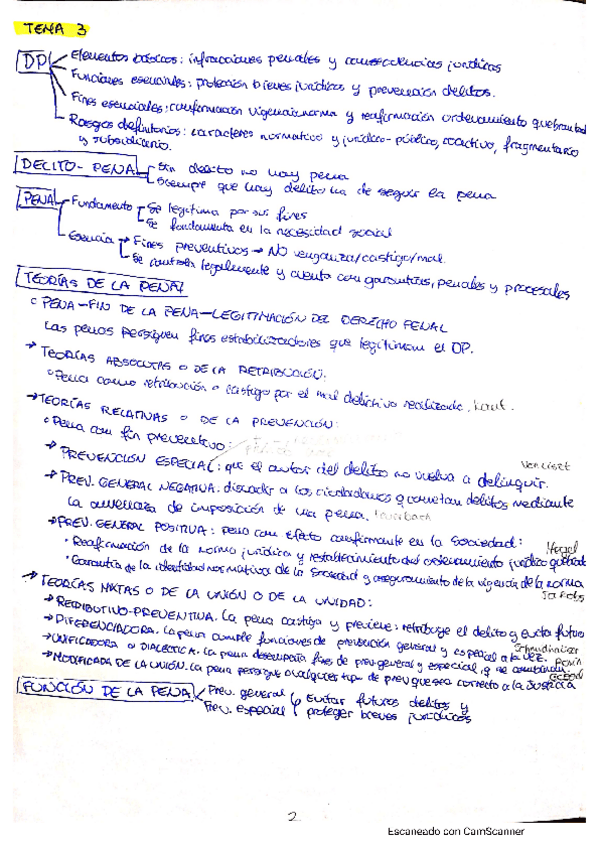 TEMA 3
DP
Elementos básicos: infracciones penales y consecuencias jurídicas
Funciones esenciales: protección bienes jurídicos y prevención delitos.
Fines esenciales: confirmación vigencia norma y reafirmación ordenamiento quebrantad
Rasgos definitorios: caracteres normativo y jurídico-público, coactivo, fragmentario
y subsidiario.
DELITO-PENA
Sin delito no hay pena
Siempre que hay delito ha de seguir la pena
PENA
Fundamento
Se legitima por sus fines
Se fundamenta en la necesidad social
Esencia
Fines preventivos → NO venganza/castigo/mal
Se controla legalmente y cuenta con garantías, penales y procesales
TEORÍAS DE LA PENA
PENA-FIN DE LA PENA-LEGITIMACIÓN DEL DERECHO PENAL
Las penas persiguen fines estabilizadores que legitiman el DP.
→ TEORÍAS ABSOLUTAS O DE LA RETRIBUCIÓN:
Pena como retribución o castigo por el mal delictivo realizado. Kant.
→ TEORÍAS RELATIVAS O DE LA PREVENCIÓN:
Pena con fin preventivo:
→ PREVENCIÓN ESPECIAL: que el autor del delito no vuelva a delinquir. Von Liszt
→ PREV. GENERAL NEGATIVA: disuadir a los ciudadanos q cometan delitos mediante
la amenaza de imposición de una pena.
→ PREV. GENERAL POSITIVA: pena con efecto confirmante en la sociedad: Hegel
• Reafirmación de la norma jurídica y restablecimiento del ordenamiento jurídico quebrado
• Garantía de la identidad normativa de la sociedad y aseguramiento de la vigencia de la norma
Jakobs
→ TEORÍAS MIXTAS O DE LA UNIÓN O DE LA UNIDAD:
→ RETRIBUTIVO-PREVENTIVA. La pena castiga y previene: retribuye el delito y evita futuro
→ DIFERENCIADORA. La pena cumple funciones de prevención general y especial a la vez. Schmidhäuser
→ UNIFICADORA O DIALÉCTICA. La pena desempeña fines de prev general y especial, q se combinan. Roxin
→ MODIFICADA DE LA UNIÓN. La pena persigue cualquier tipo de prev que sea correcto a la Justicia
FUNCIÓN DE LA PENA
Prev. general
Prev. especial
Evitar futuros delitos y
proteger bienes jurídicos
2
Escaneado con CamScanner